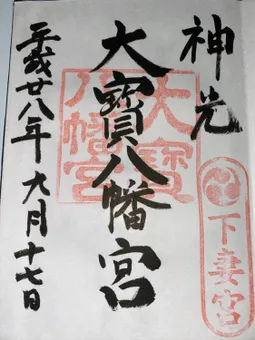 神光
大寳八幡宮
平成廿八年九月十七日
大寳八幡宮
下妻宮